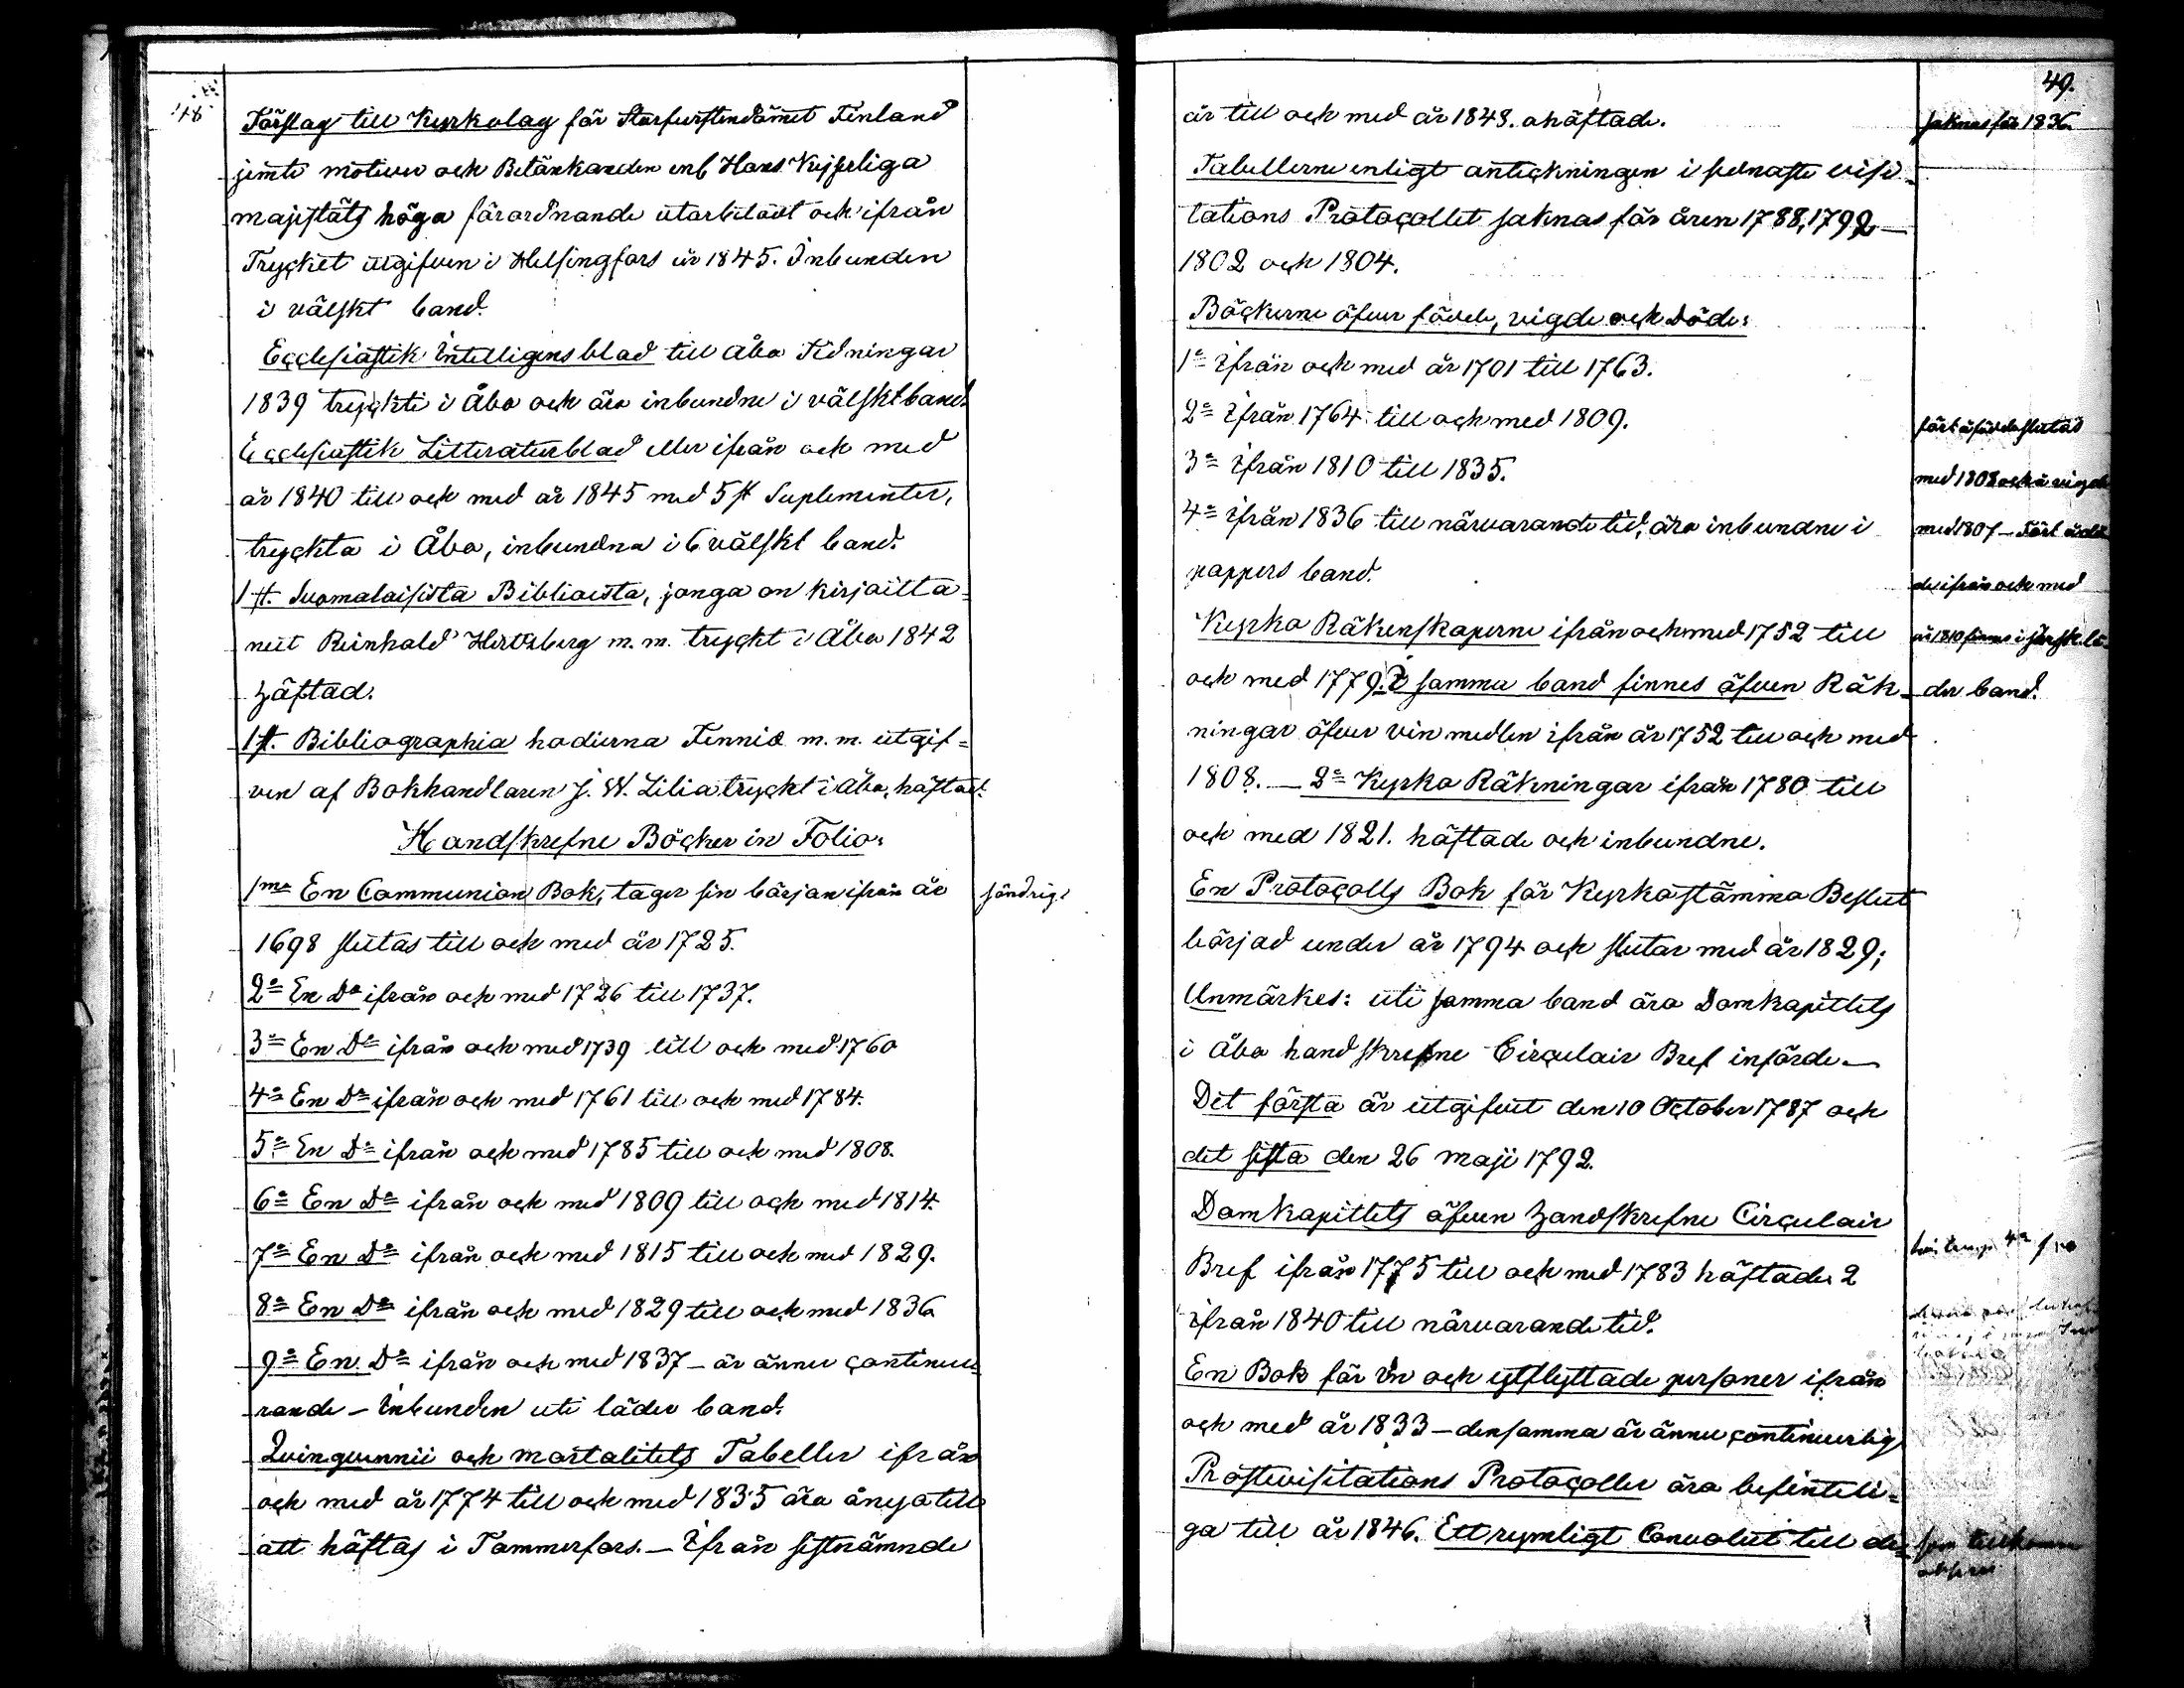 48
Förslag till Kyrkolag för Storfurstendömet Finland
jemte motiver och Betänkanden enl Hans Kejserliga
majestäts höga förordnande utarbetadt och ifrån
Trycket utgifven i Helsingfors år 1845. Inbunden
i välskt band.
Ecclesiastik Intelligensblad till Åbo Tidningar
1839 tryckte i Åbo och äro inbundne i välsktband.
Ecclesiastik Litteraturblad eller ifrån och med
år 1840 till och med år 1845 med 5 st Suplementer,
tryckta i Åbo, inbundna i 6 välskt band.
1 st. Suomalaisista Biblioista, jonga on kirjoitta=
nut Reinhold Hertzberg m. m. tryckt i Åbo 1842
häftad.
1 st. Bibliographia hodierna Fennia m. m. utgif=
ven af Bokhandlaren J. W. Lilia tryckt i Åbo, häftad.
Handskrefne Böcker in Folio:
1mo En Communion Bok, tager sin början ifrån år
söndrig
1698 slutas till och med år 1725.
2o En Do ifrån och med 1726 till 1737.
3o En Do ifrån och med 1739 till och med 1760
4o En Do ifrån och med 1761 till och med 1784.
5o En Do ifrån och med 1785 till och med 1808.
6o En Do ifrån och med 1809 till och med 1814.
7o En Do ifrån och med 1815 till och med 1829.
8o En Do ifrån och med 1829 till och med 1836
9o En Do ifrån och med 1837 – är ännu continue=
rande – Inbunden uti läder band.
Quinquennii och mortalitets Tabeller ifrån
och med år 1774 till och med 1835 äro ånyo till
att häftas i Tammerfors. – Ifrån sistnämnde
49.
år till och med år 1848. ohäftade.
saknas för 1836.
Tabellerne enligt anteckningen i senaste visi=
tations Protocollet saknas för åren 1788, 1792 –
1802 och 1804.
Böckerne öfver födde, vigde och Döde:
1o Ifrån och med år 1701 till 1763.
2o Ifrån 1764 till och med 1809.
slutas
3o Ifrån 1810 till 1835.
med 1808 och å vigde
4o Ifrån 1836 till närvarande tid, äro inbundne i
med 1807 –
pappers band.
de ifrån och med
Kyrko Räkenskaperne ifrån och med 1752 till
år 1810 finnes i särsk. lä=
och med 1779. I samma band finnes äfven Räk=
der band.
ningar öfver vin medlen ifrån år 1752 till och med
1808. – 2o Kyrko Räkningar ifrån 1780 till
och med 1821. häftade och inbundne.
En Protocolls Bok för Kyrkostämma Beslut
börjad under år 1794 och slutar med år 1829;
Anmärkes: uti samma band äro Domkapitlets
i Åbo handskrefne Circulair Bref införde. –
Det första är utgifvit den 10 October 1787 och
det sista den 26 maji 1792.
Domkapitlets äfven handskrefne Circulair
Bref ifrån 1775 till och med 1783 häftade 2
Ifrån 1840 till närvarande tid.
En Bok för in och utflyttade personer ifrån
och med år 1833 – densamma är ännu continuerlig
Prostevisitations Protocoller äro befinteli=
ga till år 1846. Ett rymligt Convolut till de=
som tillkomma